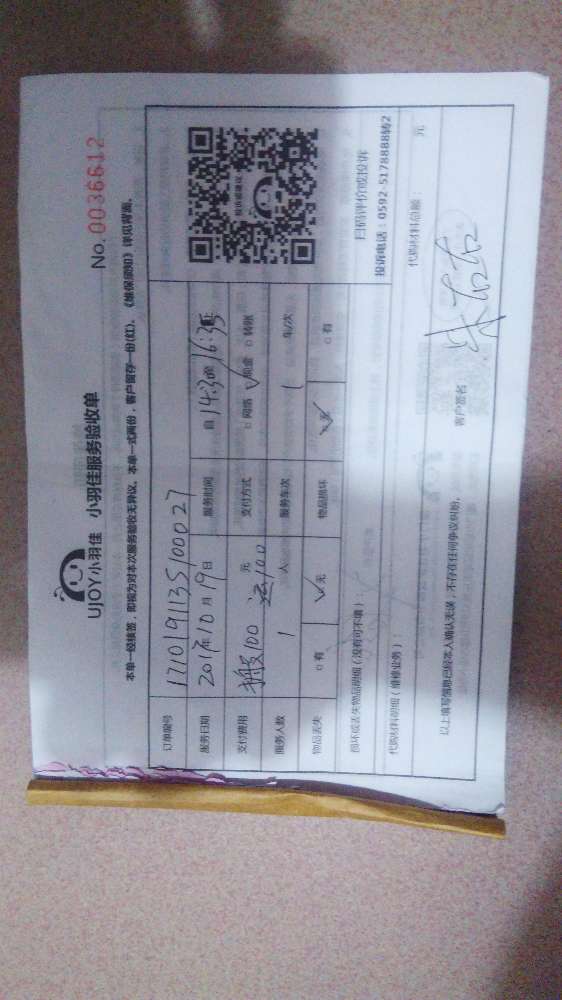 UJOY小羽佳 小羽佳服务验收单
No. 0036612
本单一经接签，即视为对本次服务验收无异议。本单一式两份，客户留存一份(红)。《维保须知》详见背面。
订单编号 17101911351 00027
服务日期 2017年10月19日 服务时间 自14:30 16:35
支付费用 搬100 运100 元 支付方式 □网络 √现金 □转账
服务人数 1 人 服务车次 1 车/次
物品丢失 □有 √无 物品损坏 □有
投诉或建议
扫码评价或投诉
投诉电话：0592-5178888转2
损坏或丢失物品明细（没有可不填）：
代购材料明细（维修业务）： 代购材料总额： 元
以上填写信息已经本人确认无误，不存在任何争议纠纷。 客户签名